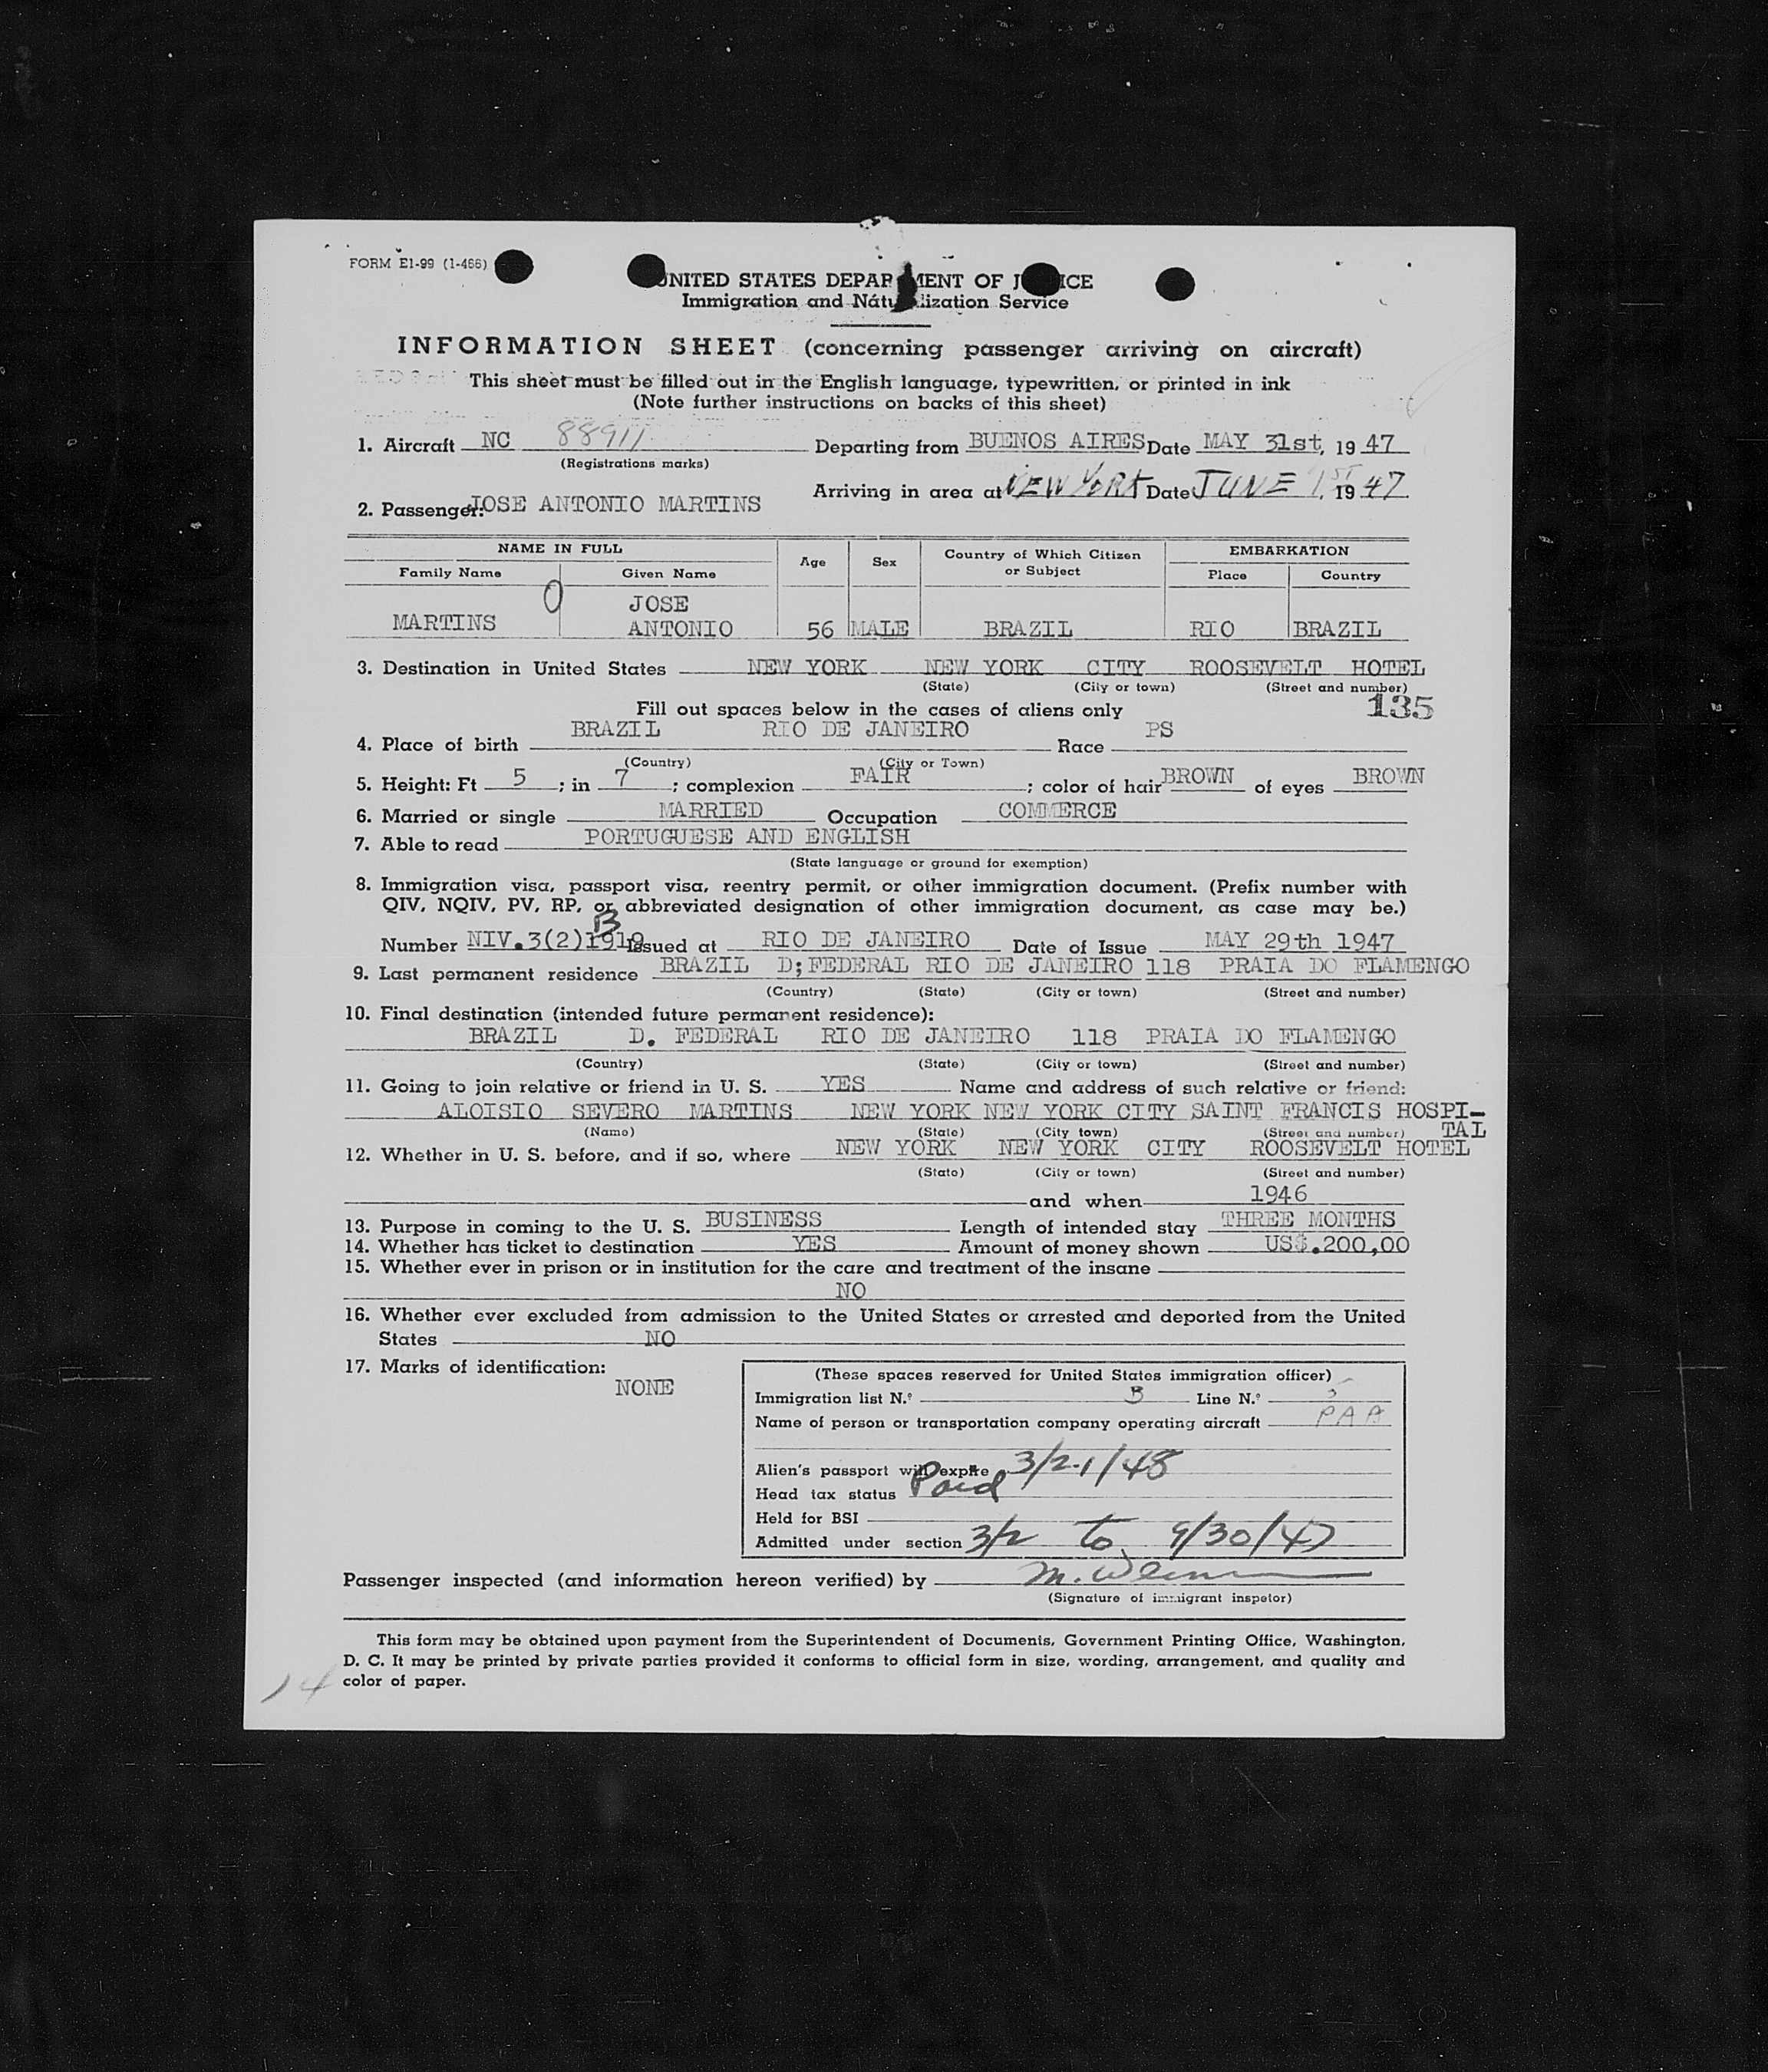 FORM E1-99 (1-466)
UNITED STATES DEPARTMENT OF JUSTICE
Immigration and Náturalization Service
INFORMATION SHEET (concerning passenger arriving on aircraft)
This sheet must be filled out in the English language, typewritten, or printed in ink
(Note further instructions on backs of this sheet)
1. Aircraft NC 88911 Departing from BUENOS AIRES Date MAY 31st, 19 47
(Registrations marks)
Arriving in area at NEW YORK Date JUNE 1ST, 19 47
2. Passenger: JOSE ANTONIO MARTINS
NAME IN FULL Age Sex Country of Which Citizen or Subject EMBARKATION
Family Name Given Name Place Country
MARTINS JOSE ANTONIO 56 MALE BRAZIL RIO BRAZIL
3. Destination in United States NEW YORK NEW YORK CITY ROOSEVELT HOTEL
(State) (City or town) (Street and number)
135
Fill out spaces below in the cases of aliens only
4. Place of birth BRAZIL RIO DE JANEIRO Race PS
(Country) (City or Town)
5. Height: Ft 5 ; in 7 ; complexion FAIR ; color of hair BROWN of eyes BROWN
6. Married or single MARRIED Occupation COMMERCE
7. Able to read PORTUGUESE AND ENGLISH
(State language or ground for exemption)
8. Immigration visa, passport visa, reentry permit, or other immigration document. (Prefix number with
QIV, NQIV, PV, RP, or abbreviated designation of other immigration document, as case may be.)
B
Number NIV.3(2)1919 Issued at RIO DE JANEIRO Date of Issue MAY 29th 1947
9. Last permanent residence BRAZIL D;FEDERAL RIO DE JANEIRO 118 PRAIA DO FLAMENGO
(Country) (State) (City or town) (Street and number)
10. Final destination (intended future permanent residence):
BRAZIL D. FEDERAL RIO DE JANEIRO 118 PRAIA DO FLAMENGO
(Country) (State) (City or town) (Street and number)
11. Going to join relative or friend in U. S. YES Name and address of such relative or friend:
ALOISIO SEVERO MARTINS NEW YORK NEW YORK CITY SAINT FRANCIS HOSPI-
(Name) (State) (City town) (Street and number) TAL
12. Whether in U. S. before, and if so, where NEW YORK NEW YORK CITY ROOSEVELT HOTEL
(State) (City or town) (Street and number)
and when 1946
13. Purpose in coming to the U. S. BUSINESS Length of intended stay THREE MONTHS
14. Whether has ticket to destination YES Amount of money shown US$.200,00
15. Whether ever in prison or in institution for the care and treatment of the insane
NO
16. Whether ever excluded from admission to the United States or arrested and deported from the United
States NO
17. Marks of identification:
NONE
(These spaces reserved for United States immigration officer)
Immigration list N.º B Line N.º
Name of person or transportation company operating aircraft PAA
Alien's passport will expire 3/21/48
Head tax status Paid
Held for BSI
Admitted under section 3/2 to 9/30/47
Passenger inspected (and information hereon verified) by M.
(Signature of immigrant inspetor)
This form may be obtained upon payment from the Superintendent of Documents, Government Printing Office, Washington,
D. C. It may be printed by private parties provided it conforms to official form in size, wording, arrangement, and quality and
color of paper.
14